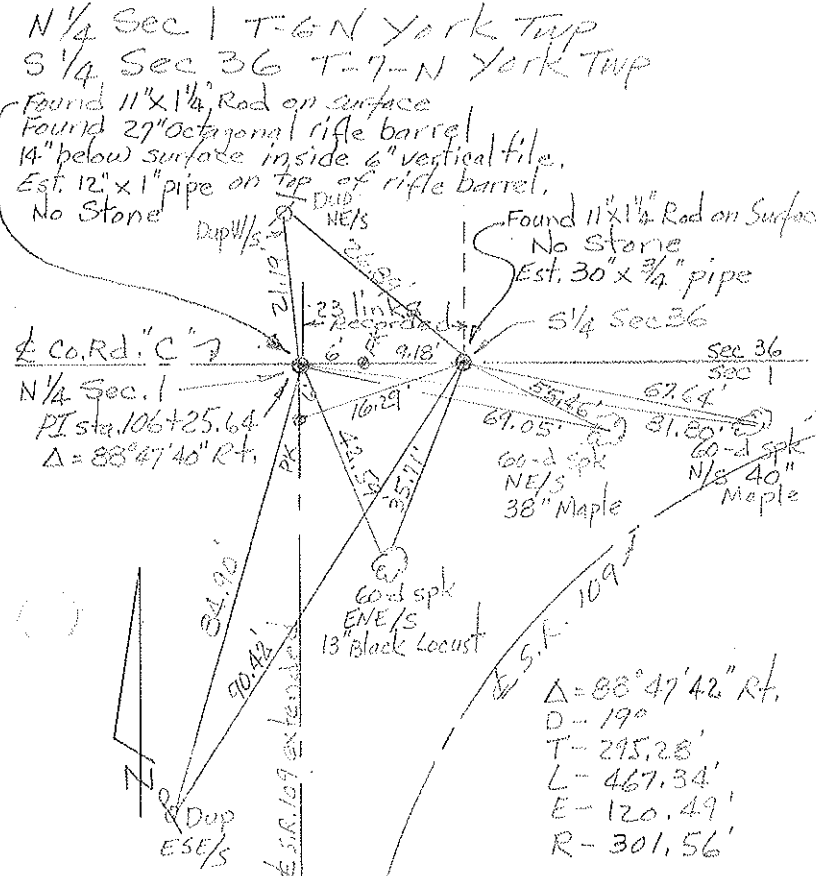 N 1/4 Sec 1 T-6-N York Twp
S 1/4 Sec 36 T-7-N York Twp
Found 11"x1 1/4" Rod on surface
Found 27" Octagonal rifle barrel
14" below surface inside 6" vertical tile.
Est. 12" x 1" pipe on top of rifle barrel.
No Stone
Dup
NE/S
Dup W/S
Found 11"x1 1/4" Rod on Surface
No Stone
Est. 30" x 3/4" pipe
21.19
23 links
recorded
S 1/4 Sec 36
℄ Co. Rd. "C"
6'
9.18'
Sec 36
Sec 1
N 1/4 Sec. 1
PI sta. 106+25.64
Δ = 88°47'40" Rt.
PK
16.29'
55.46'
67.64'
69.05'
81.80'
60-d spk
NE/S
38" Maple
60-d spk
N/S 40"
Maple
35.71'
60-d spk
ENE/S
13" Black Locust
90.42'
℄ S.R. 109 extended
℄ S.R. 109
Dup
ESE/S
N
Δ = 88°47'42" Rt.
D - 19°
T - 295.28'
L - 467.34'
E - 120.49'
R - 301.56'